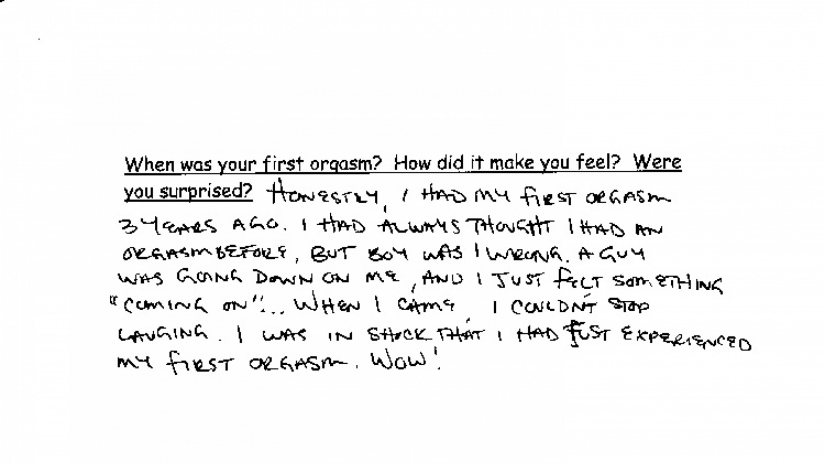 When was your first orgasm? How did it make you feel? Were
you surprised? HONESTLY, I HAD MY FIRST ORGASM
3 YEARS AGO. I HAD ALWAYS THOUGHT I HAD AN
ORGASM BEFORE, BUT BOY WAS I WRONG. A GUY
WAS GOING DOWN ON ME, AND I JUST FELT SOMETHING
"COMING ON"... WHEN I CAME, I COULDN'T STOP
LAUGING. I WAS IN SHOCK THAT I HAD JUST EXPERIENCED
MY FIRST ORGASM. WOW!